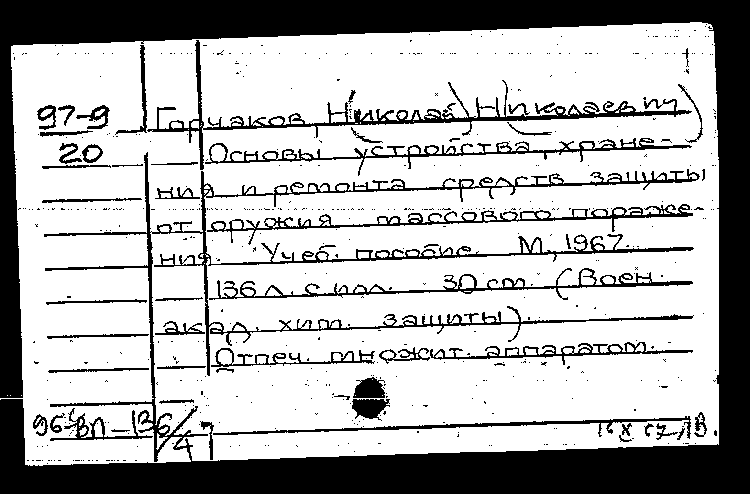 97-9 Горчаков, Н(иколай) Н(иколаевич)
20 Основы устройства, хране-
ния и ремонта средств защиты
от оружия массового пораже-
ния. Учеб. пособие. М., 1967.
136 л. с ил. 30 см. (Воен.
акад. хим. защиты).
Отпеч. множит. аппаратом.
96-ВЛ-136/47